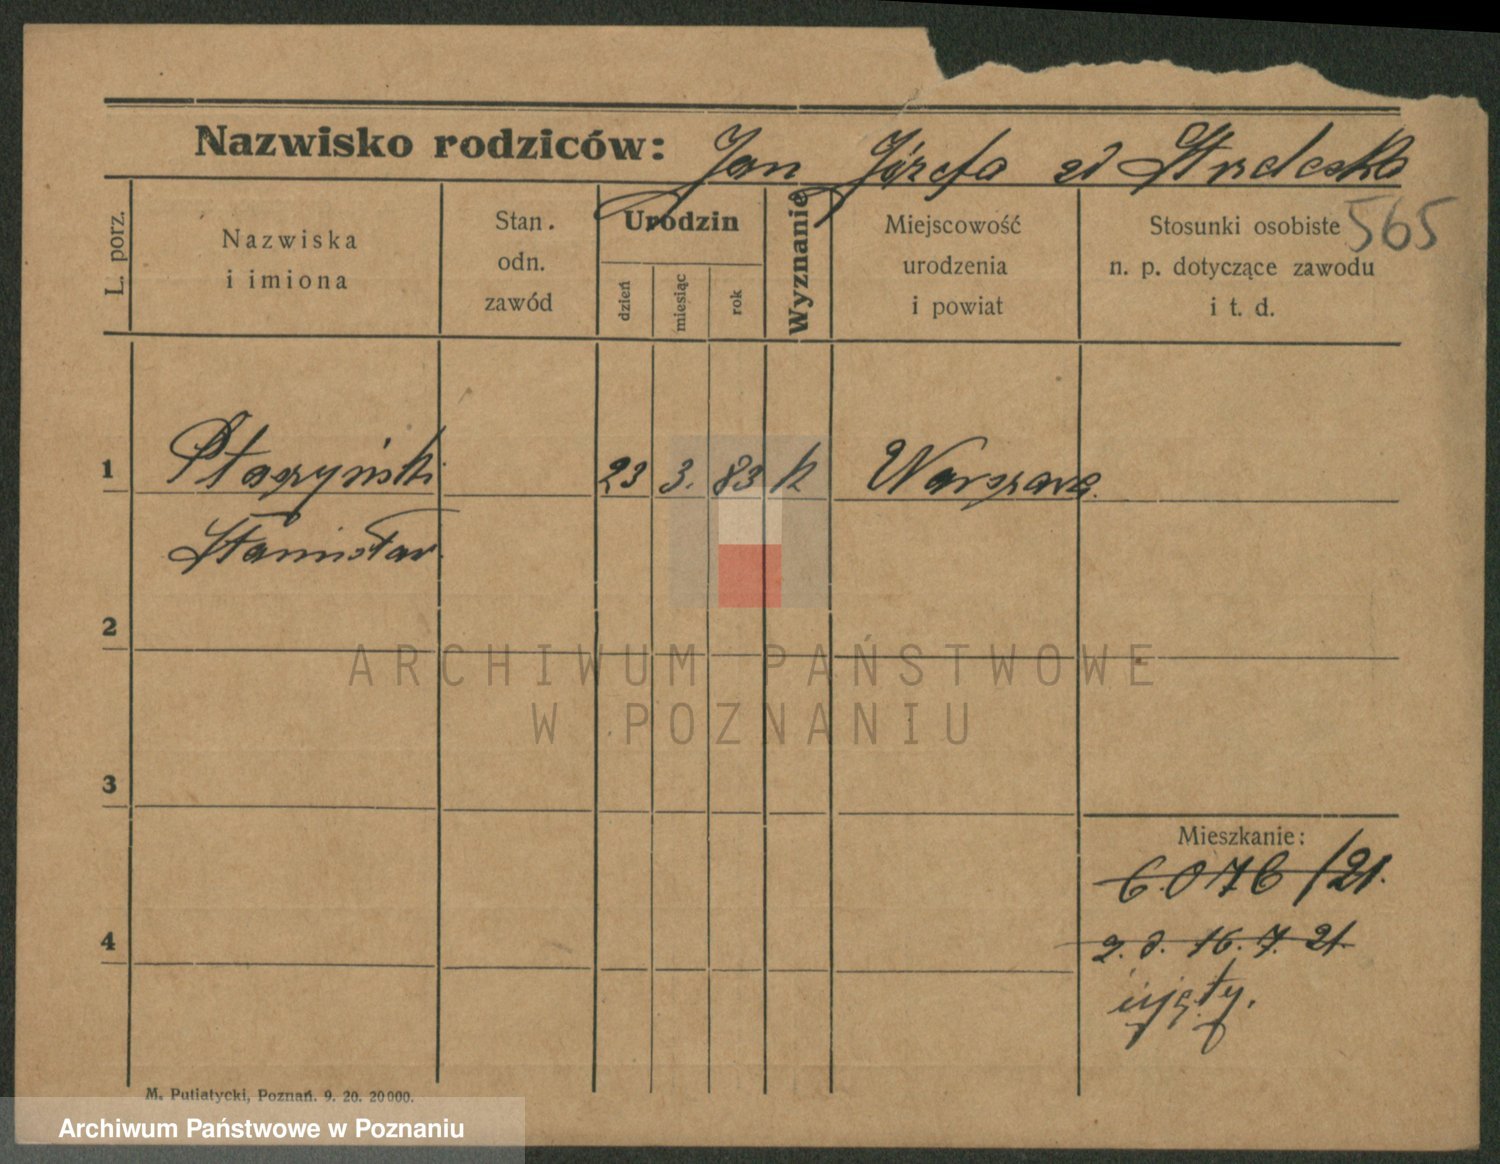 Nazwisko rodziców: Jan Józefa zd
565
L. porz.
Nazwiska
i imiona
Stan.
odn.
zawód
Urodzin
dzień
miesiąc
rok
Wyznanie
Miejscowość
urodzenia
i powiat
Stosunki osobiste
n. p. dotyczące zawodu
i t. d.
1 23 3. 83 k Warszawa.
Stanisław
2
ARCHIWUM PAŃSTWOWE
W POZNANIU
3
Mieszkanie:
6.076/21.
4
16. 7. 21
ujęty.
M. Putiatycki, Poznań. 9. 20. 20000.
Archiwum Państwowe w Poznaniu